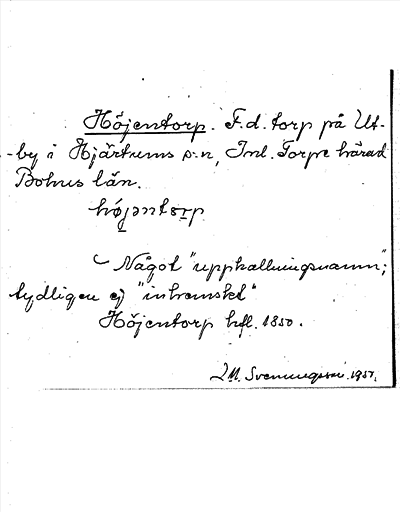 Höjentorp. F.d. torp på Ut-
-by i Hjärtums s:n, Inl. Torpe härad
Bohus län.
højəntɔrp
Något "uppkallningsnamn",
tydligen ej "inhemskt"
Höjentorp hfl. 1850.
Svenungsson 1951.